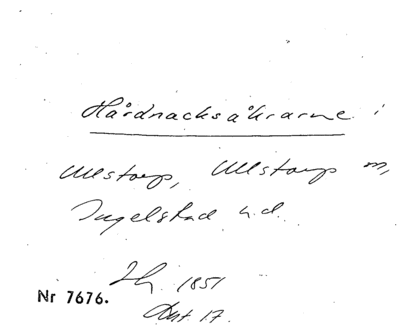 Hårdnacksåkrarne i
Ullstorp, Ullstorp sn,
Ingelstad h.d.
Jb. 1851
Akt 17.
Nr 7676.